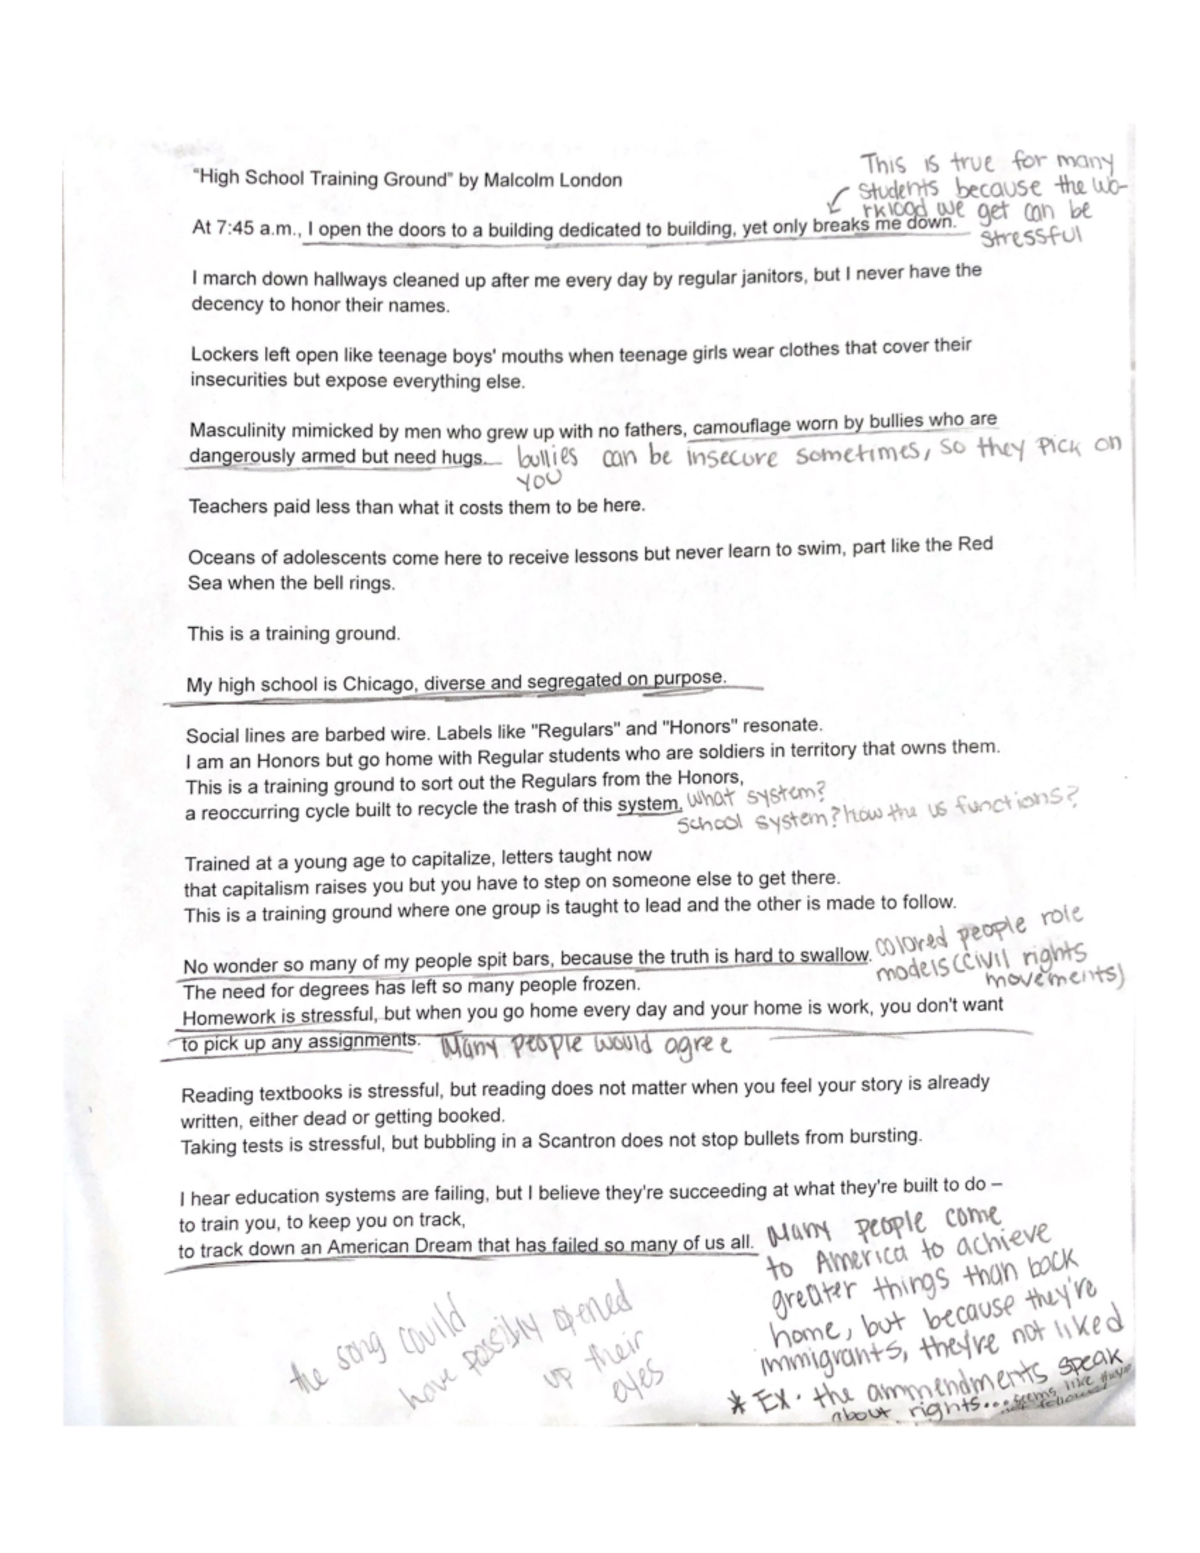 "High School Training Ground" by Malcolm London
This is true for many
students because the wo-
rkload we get can be
stressful
At 7:45 a.m., I open the doors to a building dedicated to building, yet only breaks me down.
I march down hallways cleaned up after me every day by regular janitors, but I never have the
decency to honor their names.
Lockers left open like teenage boys' mouths when teenage girls wear clothes that cover their
insecurities but expose everything else.
Masculinity mimicked by men who grew up with no fathers, camouflage worn by bullies who are
dangerously armed but need hugs.
bullies can be insecure sometimes, so they pick on
you
Teachers paid less than what it costs them to be here.
Oceans of adolescents come here to receive lessons but never learn to swim, part like the Red
Sea when the bell rings.
This is a training ground.
My high school is Chicago, diverse and segregated on purpose.
Social lines are barbed wire. Labels like "Regulars" and "Honors" resonate.
I am an Honors but go home with Regular students who are soldiers in territory that owns them.
This is a training ground to sort out the Regulars from the Honors,
a reoccurring cycle built to recycle the trash of this system.
What system?
School system? how the us functions?
Trained at a young age to capitalize, letters taught now
that capitalism raises you but you have to step on someone else to get there.
This is a training ground where one group is taught to lead and the other is made to follow.
No wonder so many of my people spit bars, because the truth is hard to swallow.
colored people role
models (civil rights
movements)
The need for degrees has left so many people frozen.
Homework is stressful, but when you go home every day and your home is work, you don't want
to pick up any assignments.
Many people would agree
Reading textbooks is stressful, but reading does not matter when you feel your story is already
written, either dead or getting booked.
Taking tests is stressful, but bubbling in a Scantron does not stop bullets from bursting.
I hear education systems are failing, but I believe they're succeeding at what they're built to do –
to train you, to keep you on track,
to track down an American Dream that has failed so many of us all.
Many people come
to America to achieve
greater things than back
home, but because they're
immigrants, they're not liked
* Ex. the ammendments speak
about rights... seems like
the song could
have possibly opened
up their
eyes